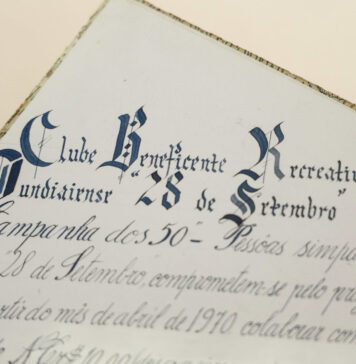 Clube Beneficente Recreativ
Jundiaiense "28 de Setembro"
Campanha dos 50 - Pessôas simpa
28 de Setembro, comprometem-se pelo pre
artir do mês de abril de 1970, colaborar com